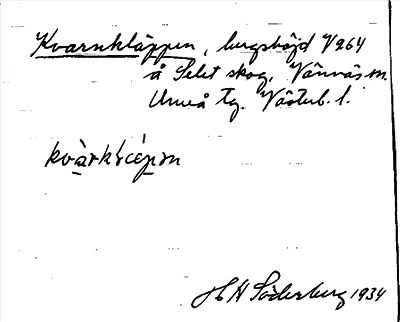 Kvarnkläppen, bergshöjd 1/264
å Selet skog, Vännäs sn.
Umeå tg. Västerb. l.
H Söderberg 1934